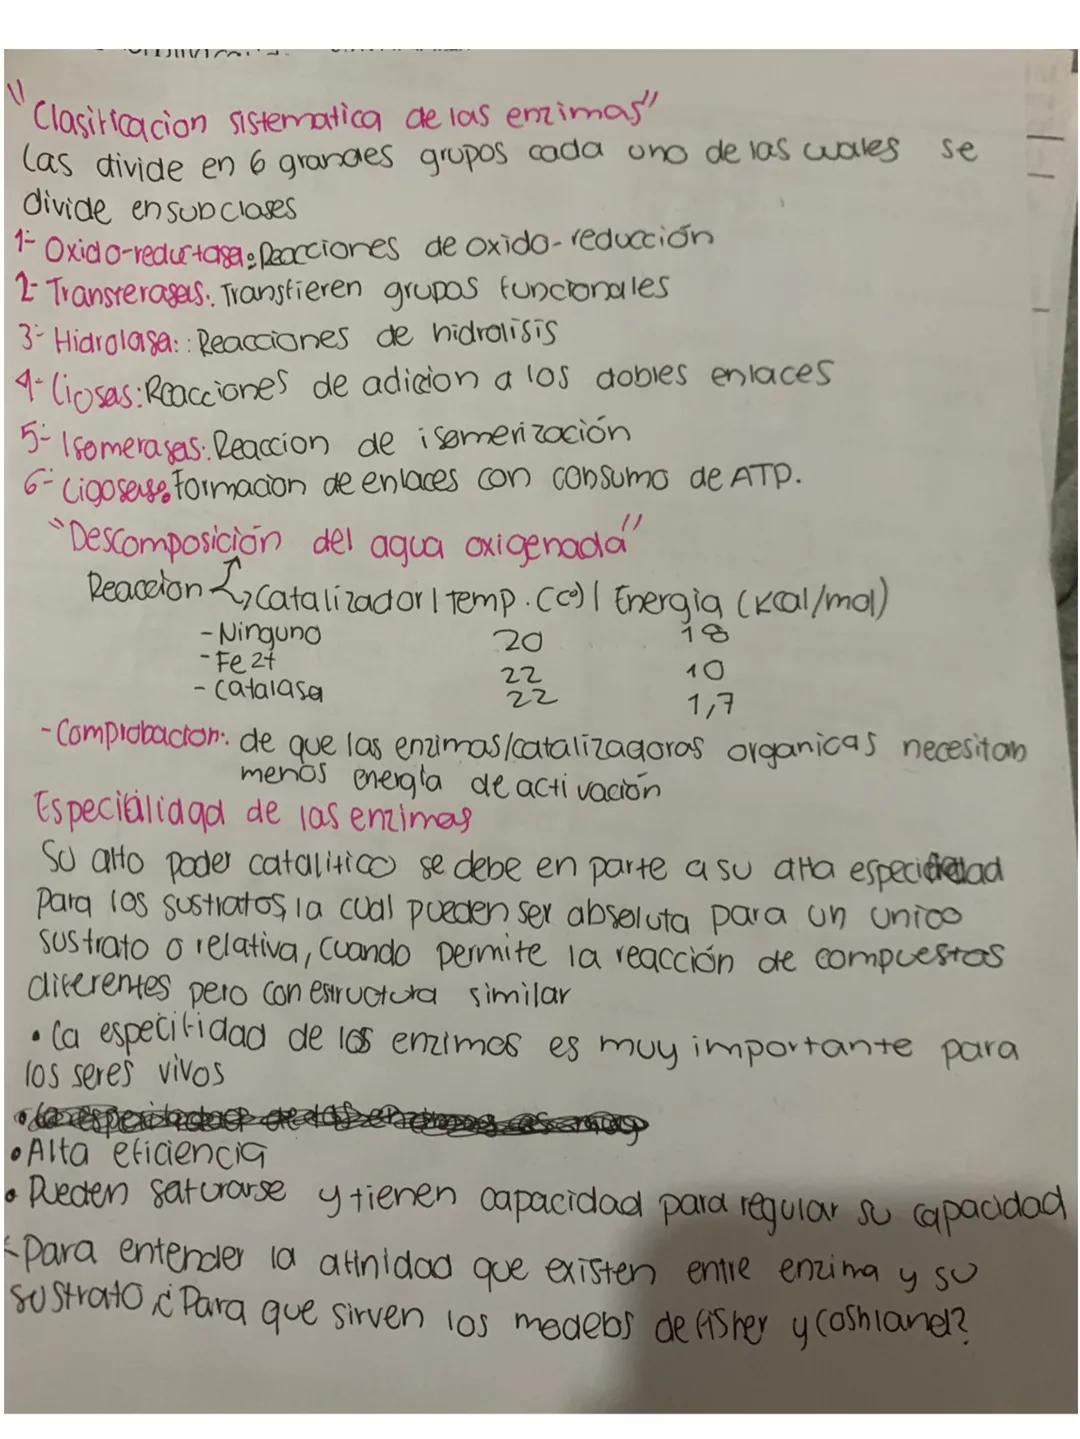 "Clasificacion sistematica de las enzimas"
Las divide en 6 grandes grupos cada uno de las cuales se
divide en subclases
1- Oxido-reductasa: Reacciones de oxido-reducción
2- Transferasas: Transfieren grupos funcionales
3- Hidrolasa: Reacciones de hidrolisis
4- Liosas: Reacciones de adicion a los dobles enlaces
5- Isomerasas: Reaccion de isomerización
6- Ligosese: Formacion de enlaces con consumo de ATP.
"Descomposición del agua oxigenada"
Reaccion Catalizador | Temp. (C°) | Energia (Kcal/mol)
- Ninguno 20 18
- Fe 2+ 22 10
- Catalasa 22 1,7
- Comprobacion: de que las enzimas/catalizadoras organicas necesitan
menos energia de activación
Especialidad de las enzimas
Su alto poder catalitico se debe en parte a su alta
para los sustratos, la cual pueden ser absoluta para un unico
sustrato o relativa, cuando permite la reacción de compuestos
diferentes pero con estructura similar
• La especifidad de las enzimas es muy importante para
los seres vivos
• Alta eficiencia
• Pueden saturarse y tienen capacidad para regular su capacidad
- Para entender la afinidad que existen entre enzima y su
sustrato ¿Para que sirven los modelos de fisher y Coshland?